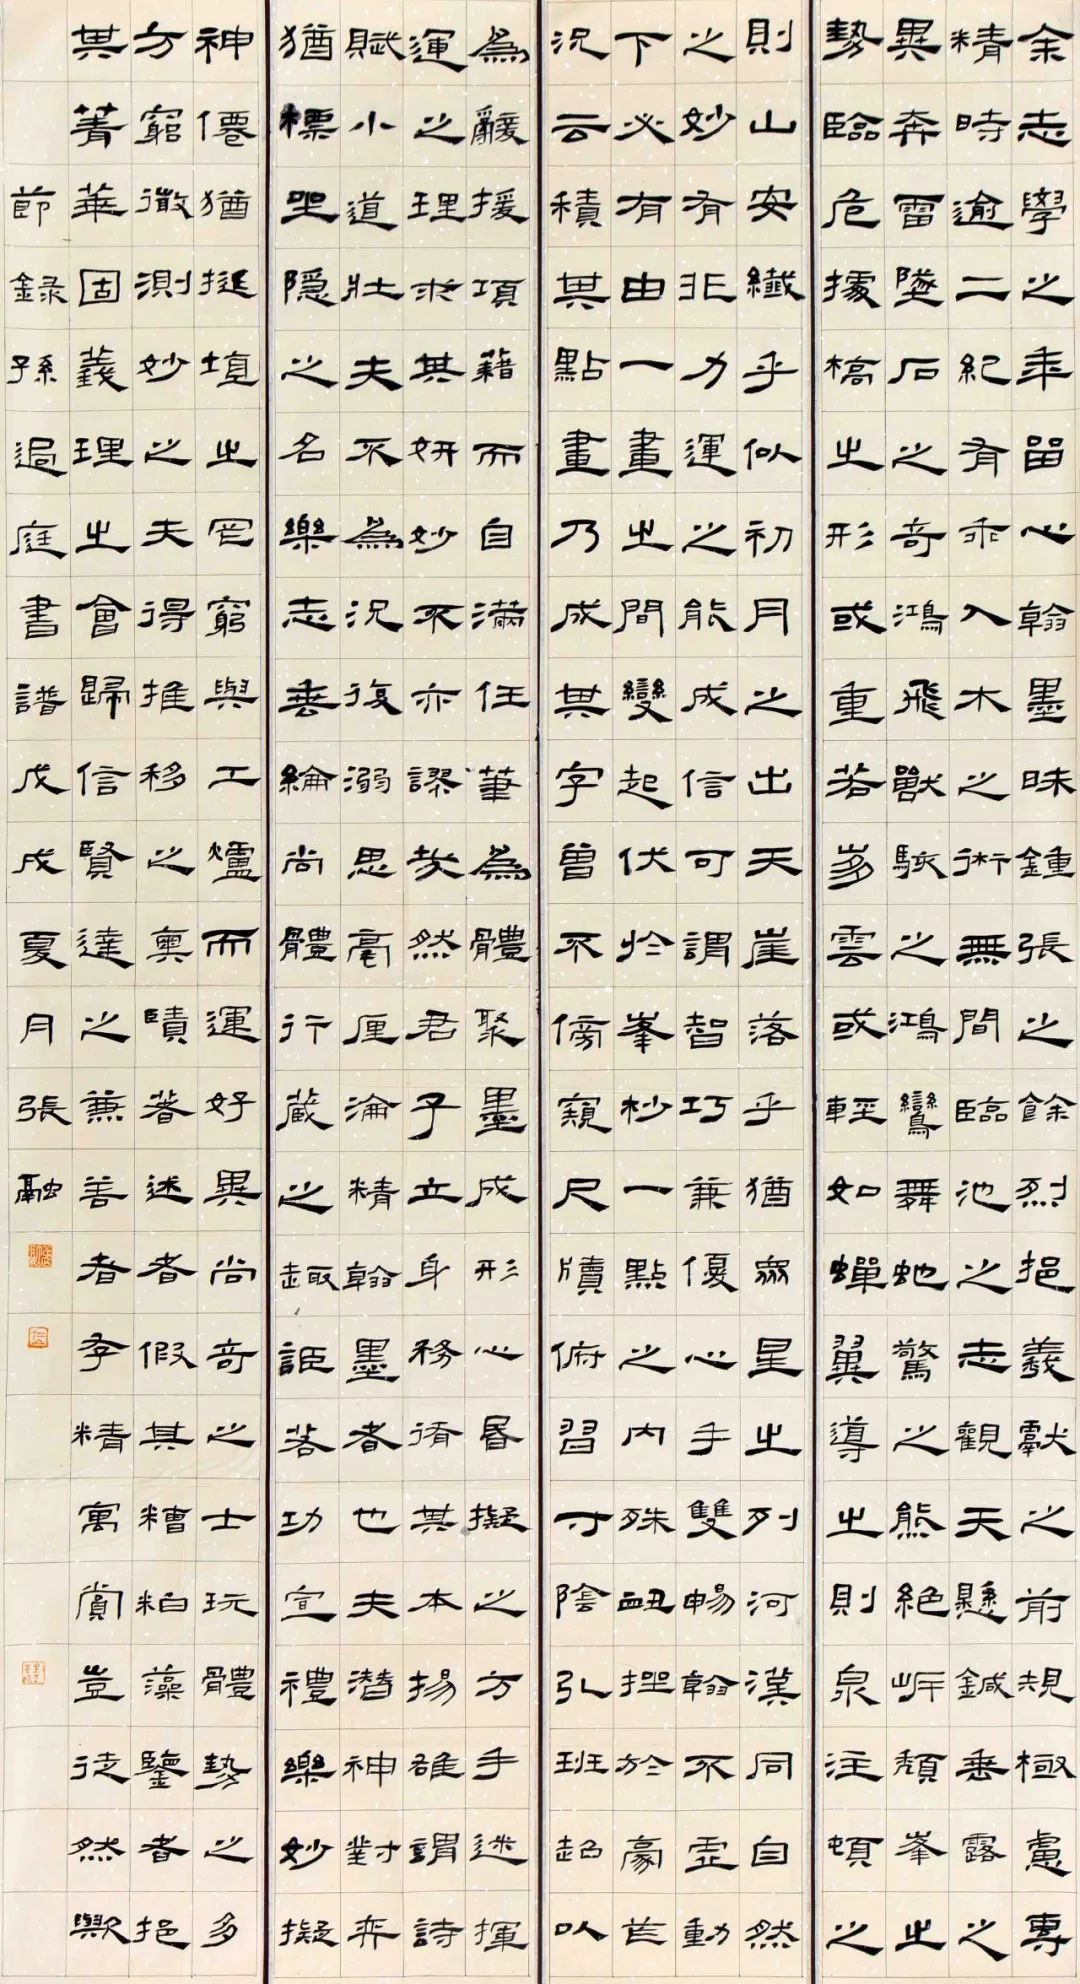 余志學之年留心翰墨昧鍾張之餘烈挹羲獻之前規極慮專
精時逾二紀有乖入木之術無間臨池之志觀天懸鍼垂露之
異奔雷墜石之奇鴻飛獸駭之鴻鸞舞虵驚之熊絕岸頹峯之
勢臨危據槁之形或重若崩雲或輕如蟬翼導之則泉注頓之
則山安纖乎似初月之出天崖落乎猶眾星之列河漢同自然
之妙有非力運之能成信可謂智巧兼優心手雙暢翰不虛動
下必有由一畫之間變起伏於峯杪一點之內殊衄挫於豪芒
況云積其點畫乃成其字曾不傍窺尺牘俯習寸陰引班超以
為辭援項籍而自滿任筆為體聚墨成形心昏擬之方手迷揮
運之理求其妍妙不亦謬哉然君子立身務脩其本揚雄謂詩
賦小道壯夫不為況復溺思毫厘淪精翰墨者也夫潛神對弈
猶標坐隱之名樂志垂綸尚體行藏之趣詎若功宣禮樂妙擬
神僊猶挻埴之罔窮與工爐而運好異尚奇之士玩體勢之多
方窮微測妙之夫得推移之奧賾著述者假其糟粕藻鑒者挹
其菁華固義理之會歸信賢達之兼善者存精寓賞豈徒然歟
節錄孫過庭書譜戊戌夏月張融